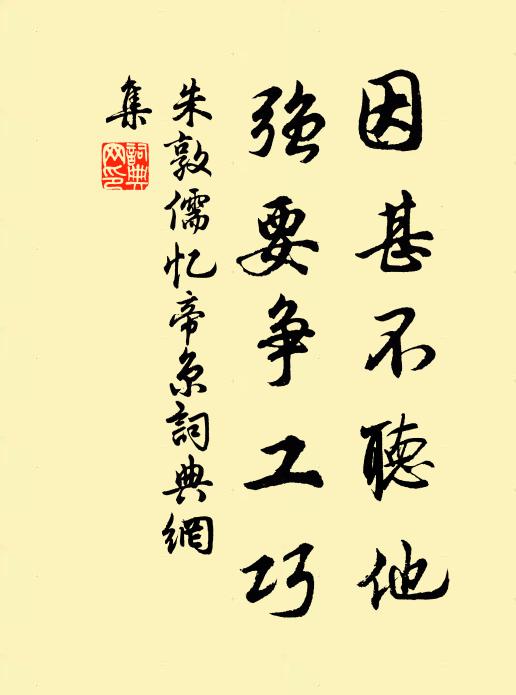 因甚不聽他
強要爭工巧
朱敦儒忆帝京詞典網
集
詞典網印